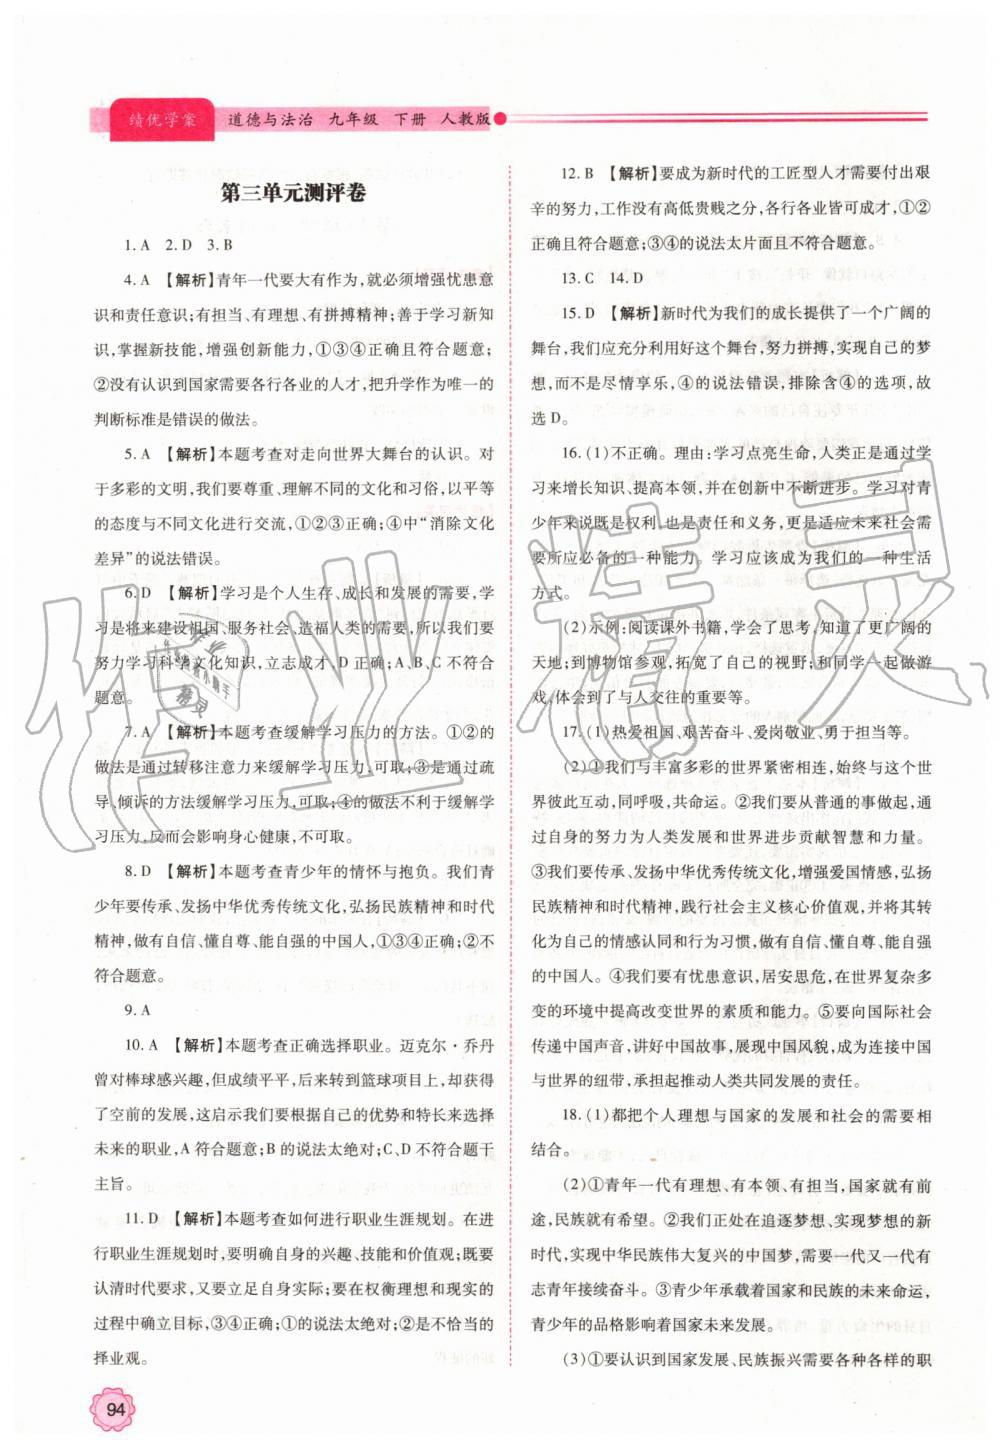 绩优学案 道德与法治 九年级 下册 人教版
第三单元测评卷
1. A 2. D 3. B
4. A 【解析】青年一代要大有作为,就必须增强忧患意
识和责任意识;有担当、有理想、有拼搏精神;善于学习新知
识,掌握新技能,增强创新能力,①③④正确且符合题意;
②没有认识到国家需要各行各业的人才,把升学作为唯一的
判断标准是错误的做法。
5. A 【解析】本题考查对走向世界大舞台的认识。对
于多彩的文明,我们要尊重、理解不同的文化和习俗,以平等
的态度与不同文化进行交流,①②③正确;④中“消除文化
差异”的说法错误。
6. D 【解析】学习是个人生存、成长和发展的需要,学
习是将来建设祖国、服务社会、造福人类的需要,所以我们要
努力学习科学文化知识,立志成才、D 正确;A、B、C 不符合
题意。
7. A 【解析】本题考查缓解学习压力的方法。①②的
做法是通过转移注意力来缓解学习压力,可取;③是通过疏
导、倾诉的方法缓解学习压力,可取;④的做法不利于缓解学
习压力,反而会影响身心健康,不可取。
8. D 【解析】本题考查青少年的情怀与抱负。我们青
少年要传承、发扬中华优秀传统文化,弘扬民族精神和时代
精神,做有自信、懂自尊、能自强的中国人,①③④正确;②不
符合题意。
9. A
10. A 【解析】本题考查正确选择职业。迈克尔·乔丹
曾对棒球感兴趣,但成绩平平,后来转到篮球项目上,却获得
了空前的发展,这启示我们要根据自己的优势和特长来选择
未来的职业,A 符合题意;B 的说法太绝对;C、D 不符合题干
主旨。
11. D 【解析】本题考查如何进行职业生涯规划。在进
行职业生涯规划时,要明确自身的兴趣、技能和价值观;既要
认清时代要求,又要立足自身实际;要在权衡理想和现实的
过程中确立目标,③④正确;①的说法太绝对;②是不恰当的
择业观。
12. B 【解析】要成为新时代的工匠型人才需要付出艰
辛的努力,工作没有高低贵贱之分,各行各业皆可成才,①②
正确且符合题意;③④的说法太片面且不符合题意。
13. C 14. D
15. D 【解析】新时代为我们的成长提供了一个广阔的
舞台,我们应充分利用好这个舞台,努力拼搏,实现自己的梦
想,而不是尽情享乐,④的说法错误,排除含④的选项,故
选 D。
16. (1)不正确。理由:学习点亮生命,人类正是通过学
习来增长知识、提高本领,并在创新中不断进步。学习对青
少年来说既是权利,也是责任和义务,更是适应未来社会需
要所应必备的一种能力。学习应该成为我们的一种生活
方式。
(2)示例:阅读课外书籍,学会了思考,知道了更广阔的
天地;到博物馆参观,拓宽了自己的视野;和同学一起做游
戏,体会到了与人交往的重要等。
17. (1)热爱祖国、艰苦奋斗、爱岗敬业、勇于担当等。
(2)①我们与丰富多彩的世界紧密相连,始终与这个世
界彼此互动,同呼吸,共命运。②我们要从普通的事做起,通
过自身的努力为人类发展和世界进步贡献智慧和力量。
③我们要传承、发扬中华优秀传统文化,增强爱国情感,弘扬
民族精神和时代精神,践行社会主义核心价值观,并将其转
化为自己的情感认同和行为习惯,做有自信、懂自尊、能自强
的中国人。④我们要有忧患意识,居安思危,在世界复杂多
变的环境中提高改变世界的素质和能力。⑤要向国际社会
传递中国声音,讲好中国故事,展现中国风貌,成为连接中国
与世界的纽带,承担起推动人类共同发展的责任。
18. (1)都把个人理想与国家的发展和社会的需要相
结合。
(2)①青年一代有理想、有本领、有担当,国家就有前
途,民族就有希望。②我们正处在追逐梦想、实现梦想的新
时代,实现中华民族伟大复兴的中国梦,需要一代又一代有
志青年接续奋斗。③青少年承载着国家和民族的未来命运,
青少年的品格影响着国家未来发展。
(3)①要认识到国家发展、民族振兴需要各种各样的职
94
作业精灵